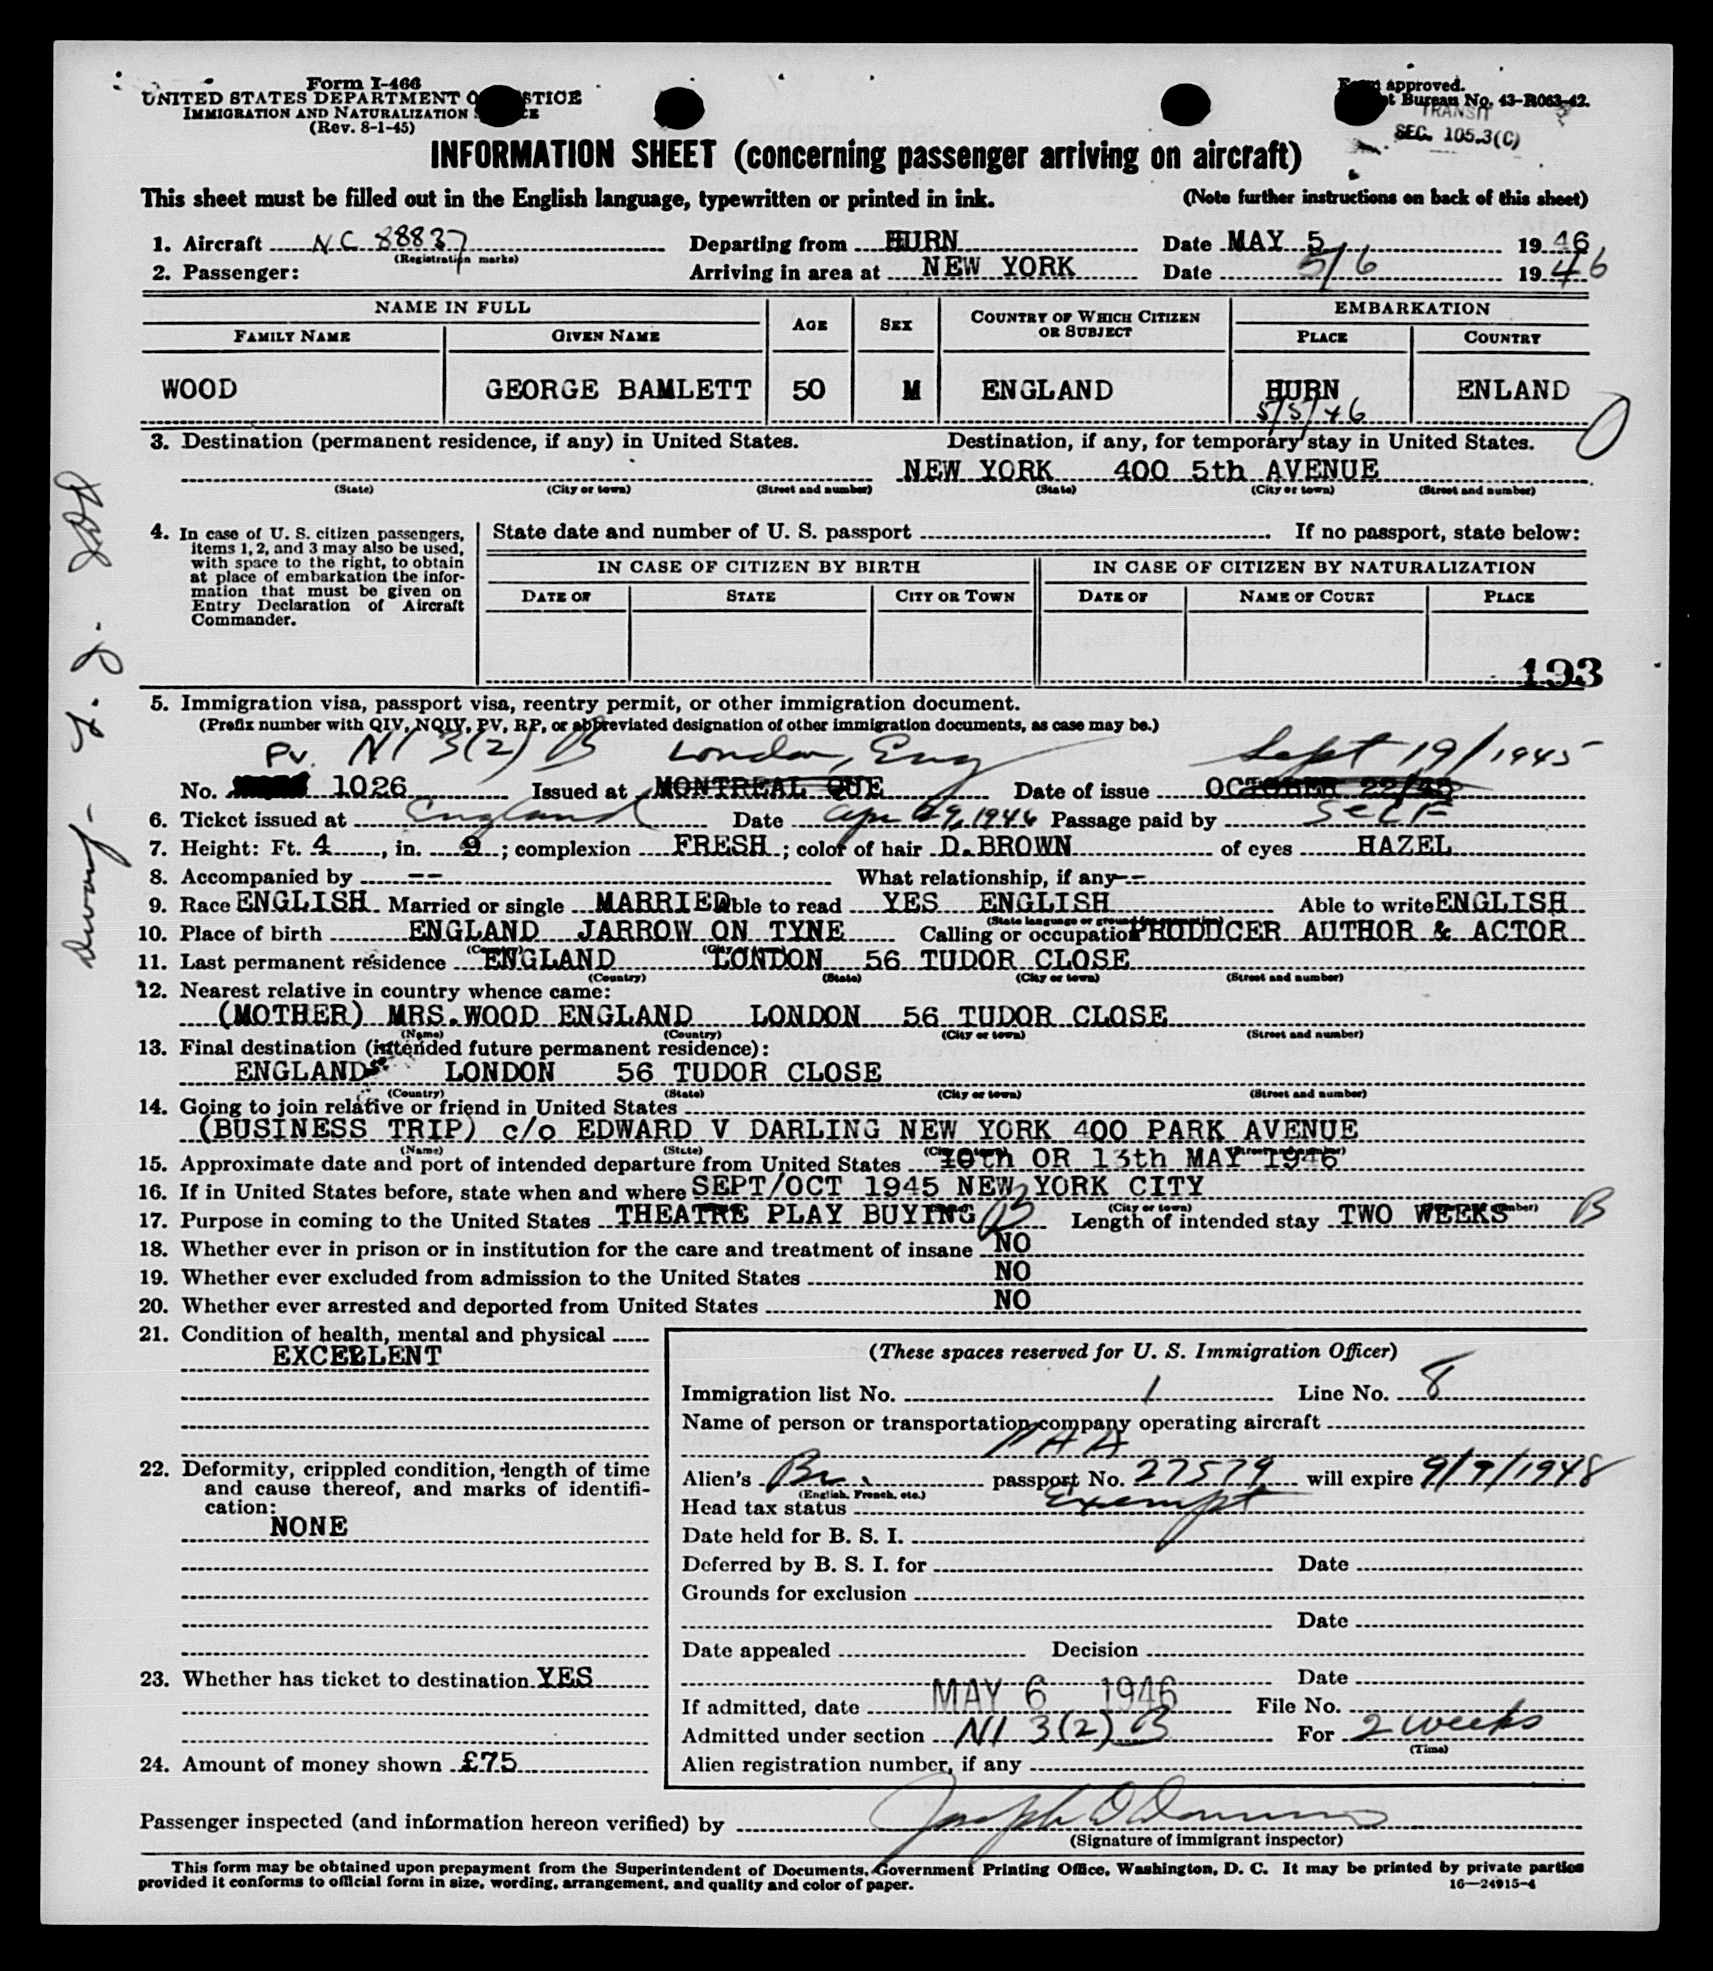 Form I-466
UNITED STATES DEPARTMENT OF JUSTICE
IMMIGRATION AND NATURALIZATION
(Rev. 8-1-45)
Form approved.
Bureau No. 43-R063-42.
TRANSIT
SEC. 105.3(C)
INFORMATION SHEET (concerning passenger arriving on aircraft)
This sheet must be filled out in the English language, typewritten or printed in ink. (Note further instructions on back of this sheet)
1. Aircraft NC 88837 Departing from HURN Date MAY 5 1946
(Registration marks)
2. Passenger: Arriving in area at NEW YORK Date 5/6 1946
NAME IN FULL AGE SEX COUNTRY OF WHICH CITIZEN OR SUBJECT EMBARKATION
FAMILY NAME GIVEN NAME PLACE COUNTRY
WOOD GEORGE BAMLETT 50 M ENGLAND HURN ENLAND
5/5/46
3. Destination (permanent residence, if any) in United States. Destination, if any, for temporary stay in United States.
NEW YORK 400 5th AVENUE
(State) (City or town) (Street and number) (State) (City or town) (Street and number)
4. In case of U. S. citizen passengers, items 1, 2, and 3 may also be used, with space to the right, to obtain at place of embarkation the information that must be given on Entry Declaration of Aircraft Commander.
State date and number of U. S. passport If no passport, state below:
IN CASE OF CITIZEN BY BIRTH IN CASE OF CITIZEN BY NATURALIZATION
DATE OF STATE CITY OR TOWN DATE OF NAME OF COURT PLACE
193
5. Immigration visa, passport visa, reentry permit, or other immigration document.
(Prefix number with QIV, NQIV, PV, RP, or abbreviated designation of other immigration documents, as case may be.)
PV. NI 3(2) B London, Eng Sept 19/1945
No. 1026 Issued at MONTREAL QUE Date of issue OCTOBER 22/45
6. Ticket issued at England Date Apr 29, 1946 Passage paid by SELF
7. Height: Ft. 4, in. 9; complexion FRESH; color of hair D.BROWN of eyes HAZEL
8. Accompanied by -- What relationship, if any --
9. Race ENGLISH Married or single MARRIED Able to read YES ENGLISH Able to write ENGLISH
(State language or ground for exemption)
10. Place of birth ENGLAND JARROW ON TYNE Calling or occupation PRODUCER AUTHOR & ACTOR
11. Last permanent residence ENGLAND LONDON 56 TUDOR CLOSE
(Country) (State) (City or town) (Street and number)
12. Nearest relative in country whence came:
(MOTHER) MRS.WOOD ENGLAND LONDON 56 TUDOR CLOSE
(Name) (Country) (City or town) (Street and number)
13. Final destination (intended future permanent residence):
ENGLAND LONDON 56 TUDOR CLOSE
(Country) (State) (City or town) (Street and number)
14. Going to join relative or friend in United States
(BUSINESS TRIP) c/o EDWARD V DARLING NEW YORK 400 PARK AVENUE
(Name) (State) (City or town) (Street and number)
15. Approximate date and port of intended departure from United States 10th OR 13th MAY 1946
16. If in United States before, state when and where SEPT/OCT 1945 NEW YORK CITY
17. Purpose in coming to the United States THEATRE PLAY BUYING B Length of intended stay TWO WEEKS B
18. Whether ever in prison or in institution for the care and treatment of insane NO
19. Whether ever excluded from admission to the United States NO
20. Whether ever arrested and deported from United States NO
21. Condition of health, mental and physical
EXCELLENT
22. Deformity, crippled condition, length of time and cause thereof, and marks of identification:
NONE
23. Whether has ticket to destination YES
24. Amount of money shown £75
(These spaces reserved for U. S. Immigration Officer)
Immigration list No. 1 Line No. 8
Name of person or transportation company operating aircraft
PAA
Alien's Br. passport No. 27579 will expire 9/9/1948
(English, French, etc.)
Head tax status Exempt
Date held for B. S. I.
Deferred by B. S. I. for Date
Grounds for exclusion
Date
Date appealed Decision
Date
If admitted, date MAY 6 1946 File No.
Admitted under section NI 3(2) B For 2 weeks
(Time)
Alien registration number, if any
Passenger inspected (and information hereon verified) by
(Signature of immigrant inspector)
This form may be obtained upon prepayment from the Superintendent of Documents, Government Printing Office, Washington, D. C. It may be printed by private parties
provided it conforms to official form in size, wording, arrangement, and quality and color of paper. 16—24915-4